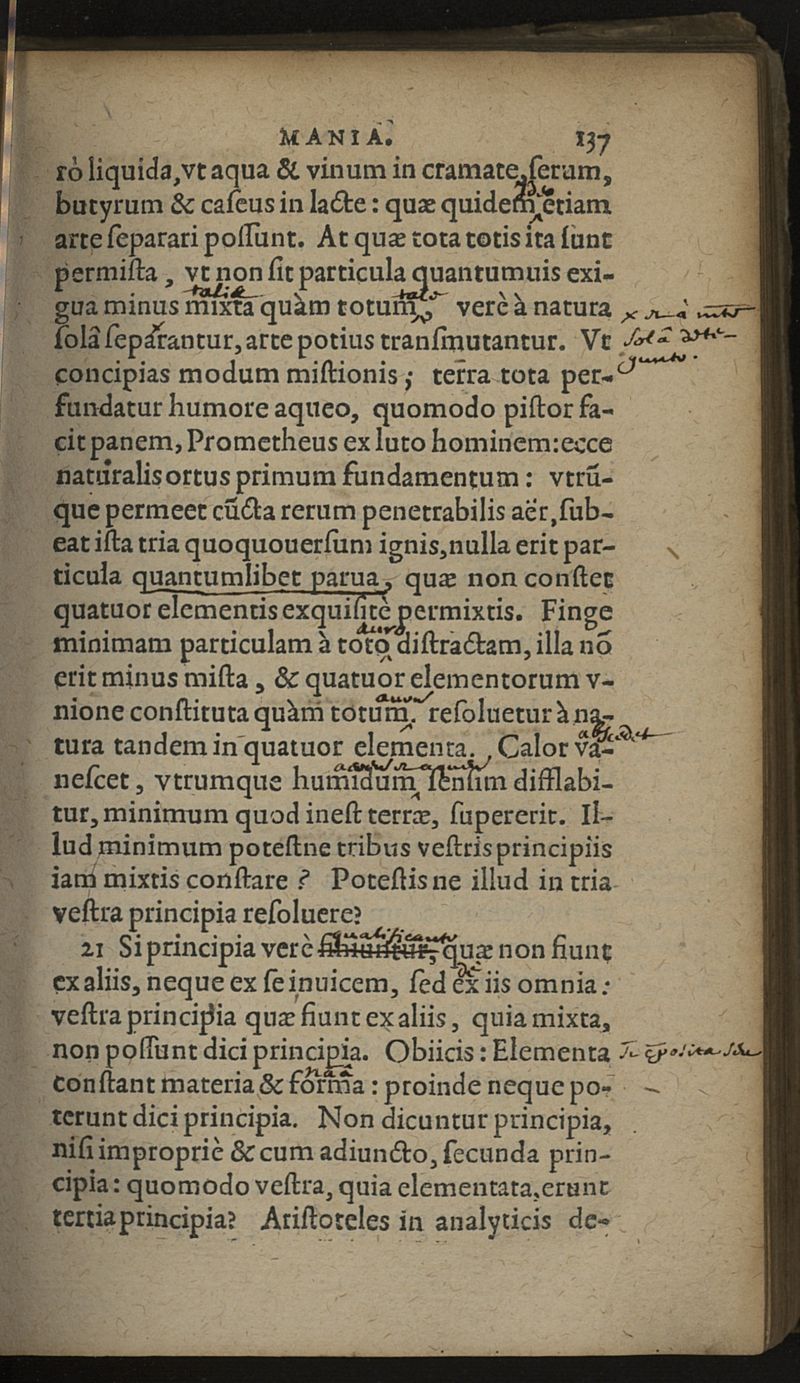 MANIA. 137
rò liquida, vt aqua & vinum in cramate, ſerum,
butyrum & caſeus in lacte : quæ quidem etiam
arte ſeparari poſſunt. At quæ tota totis ita ſunt
permiſta , vt non ſit particula quantumuis exi-
talis
gua minus mixta quàm totum, verè à natura
ſolâ ſeparantur, arte potius tranſmutantur. Vt
concipias modum miſtionis ; terra tota per-
fundatur humore aqueo, quomodo piſtor fa-
cit panem, Prometheus ex luto hominem: ecce
naturalis ortus primum fundamentum : vtrũ-
que permeet cũcta rerum penetrabilis aër, ſub-
eat iſta tria quoquouerſum ignis, nulla erit par-
ticula quantumlibet parua, quæ non conſtet
quatuor elementis exquiſitè permixtis. Finge
minimam particulam à toto diſtractam, illa nõ
erit minus miſta , & quatuor elementorum v-
nione conſtituta quàm totum. reſoluetur à na-
tura tandem in quatuor elementa. , Calor va-
neſcet , vtrumque humidum ſenſim difflabi-
tur, minimum quod ineſt terræ, ſupererit. Il-
lud minimum poteſtne tribus veſtris principiis
iam mixtis conſtare ? Poteſtis ne illud in tria
veſtra principia reſoluere?
21 Si principia verè quæ non fiunt
ex aliis, neque ex ſe inuicem, ſed ex iis omnia :
veſtra principia quæ fiunt ex aliis , quia mixta,
non poſſunt dici principia. Obiicis : Elementa
conſtant materia & forma : proinde neque po-
terunt dici principia. Non dicuntur principia,
niſi impropriè & cum adiuncto, ſecunda prin-
cipia : quomodo veſtra, quia elementata, erunt
tertia principia? Ariſtoteles in analyticis de-